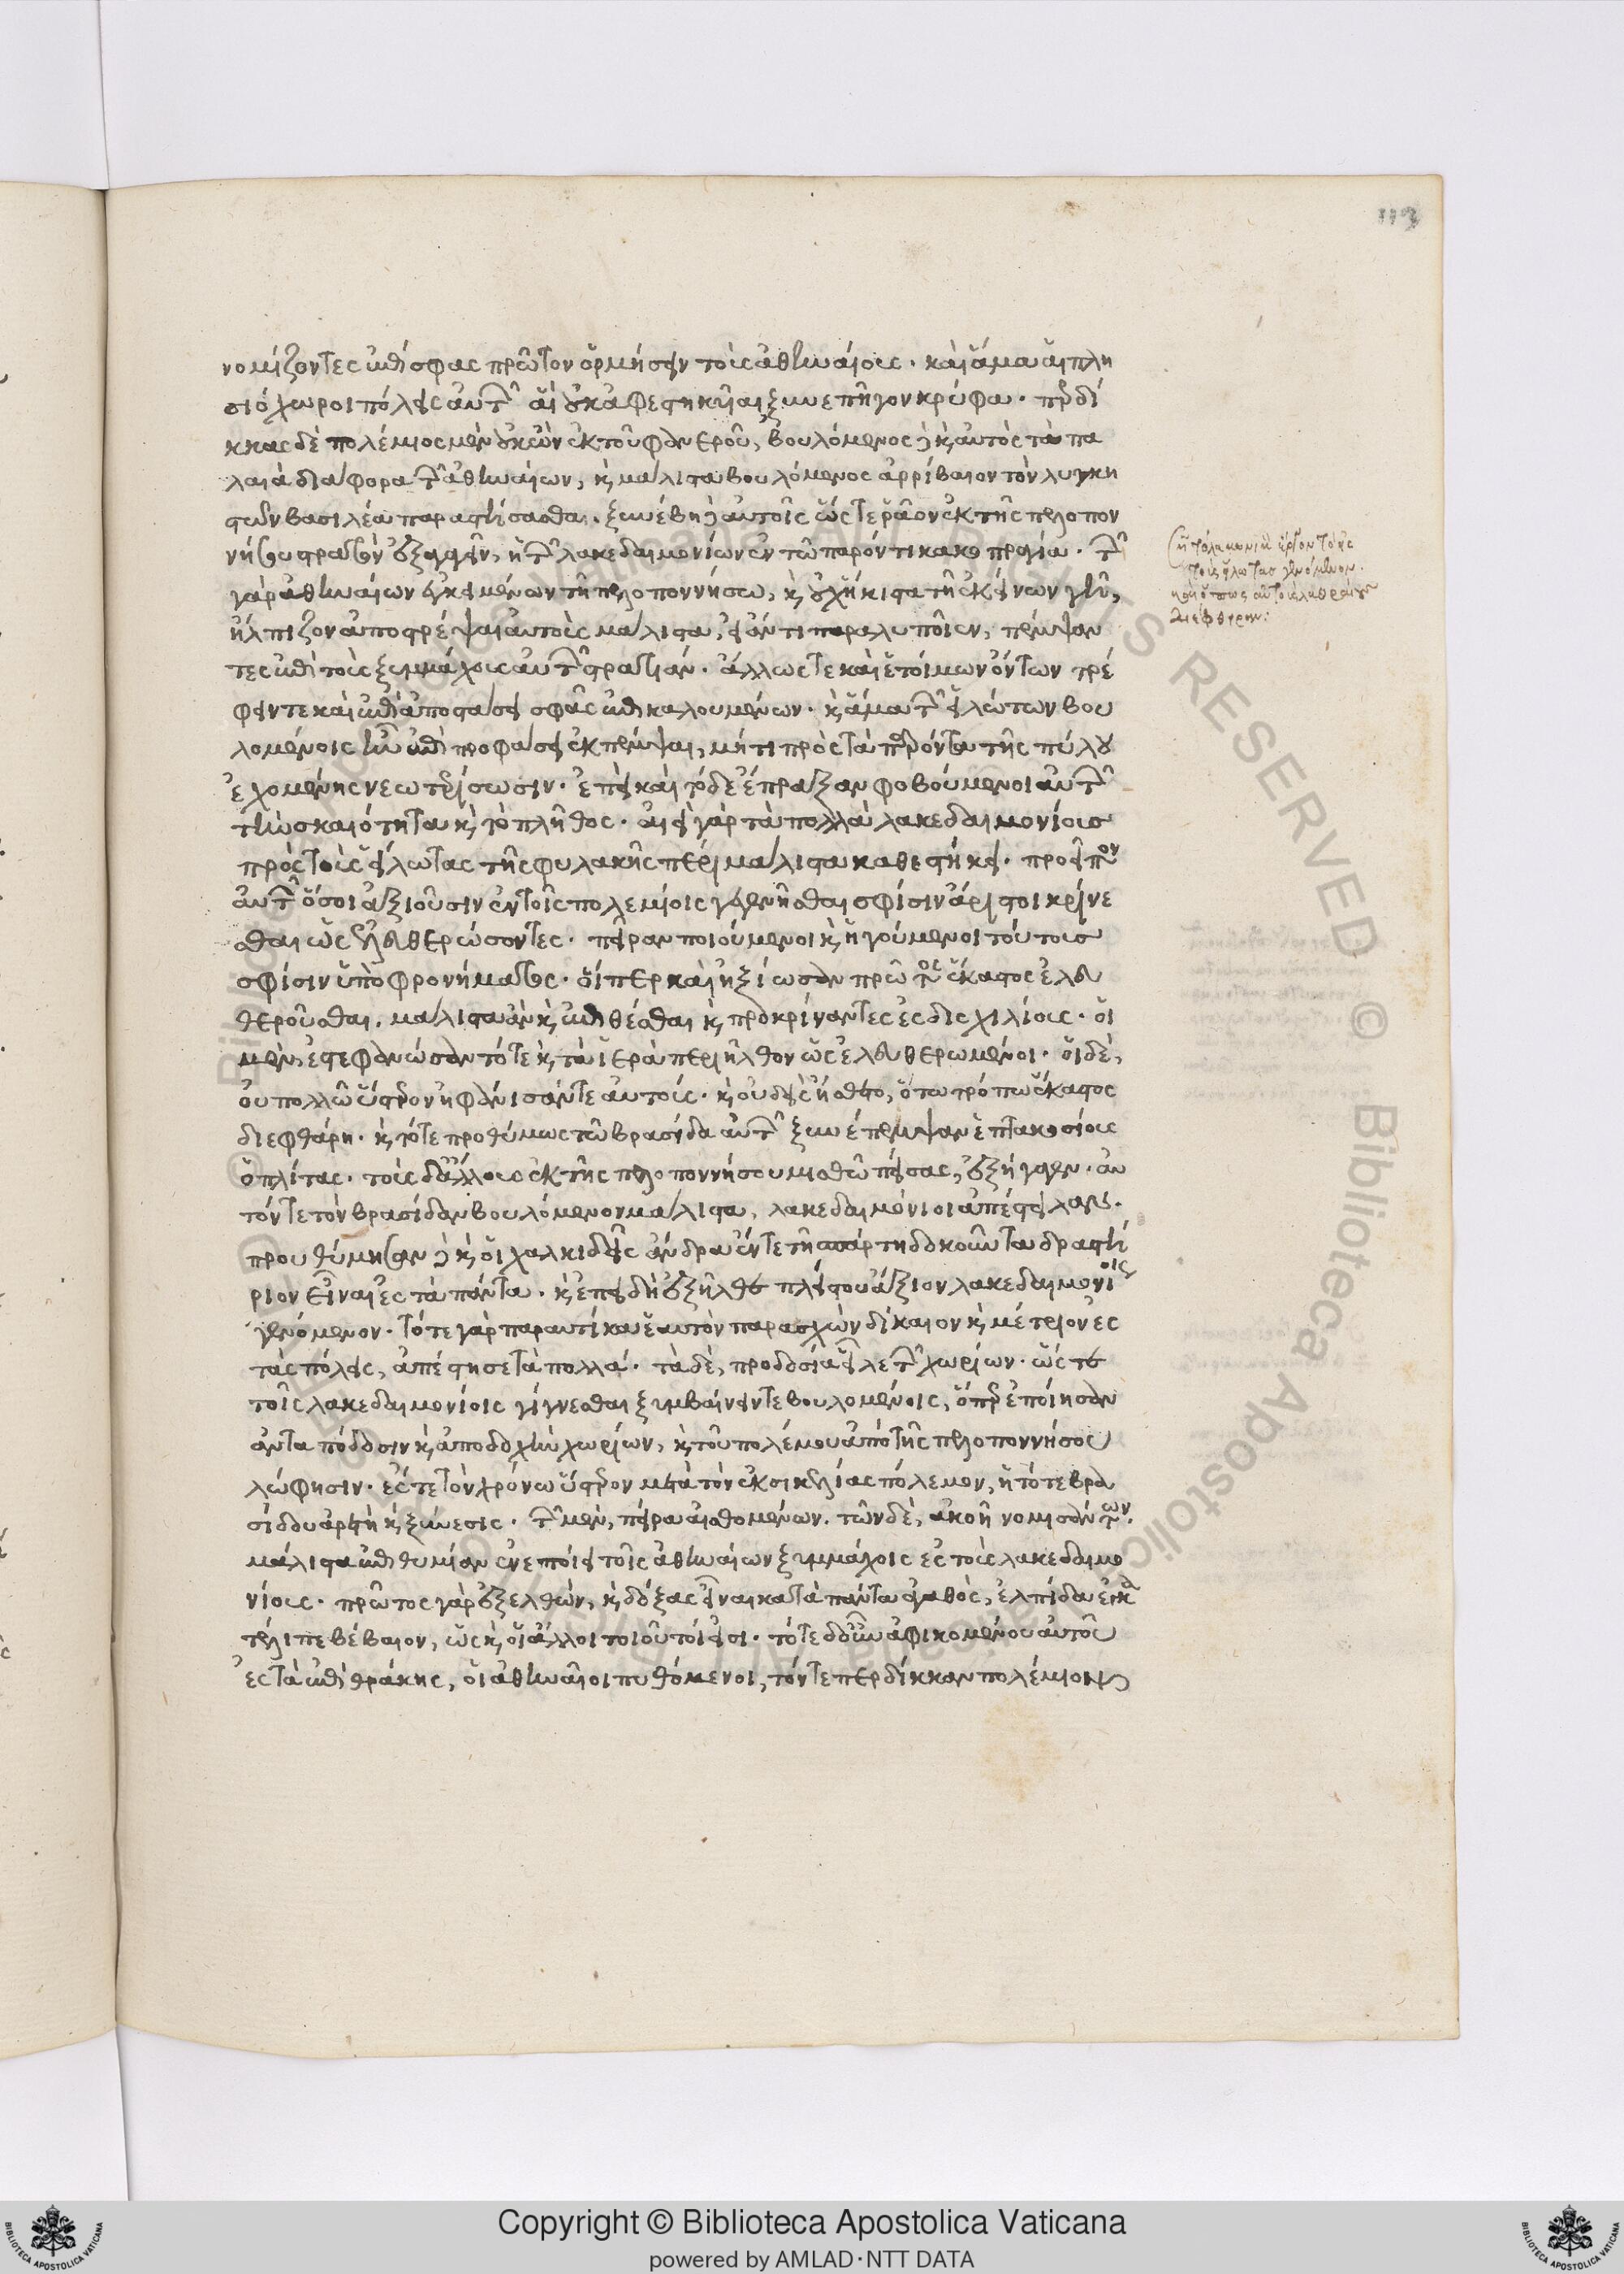 νομίζοντες ἐπὶ σφᾶς πρῶτον ὁρμήσειν τοὺς ἀθηναίους. καὶ ἅμα αἱ πλη
σιόχωροι πόλεις αὐτῶν αἱ οὐκ ἀφεστηκυῖαι ξυνεπῆγον κρύφα. περδί
κκας δὲ πολέμιος μὲν οὐκ ὢν ἐκ τοῦ φανεροῦ, βουλόμενος δὲ καὶ αὐτὸς τὰ πα
λαιὰ διάφορα τῶν ἀθηναίων, καὶ μάλιστα βουλόμενος ἀρρίβαιον τὸν λυγκη
στῶν βασιλέα παραστήσασθαι. ξυνέβη δὲ αὐτοῖς ὥστε ῥᾶον ἐκ τῆς πελοπον
νήσου στρατὸν ἐξαγαγεῖν, ἡ τῶν λακεδαιμονίων ἐν τῶ παρόντι κακοπραγία. τῶν
γὰρ ἀθηναίων ἐγκειμένων τῆ πελοποννήσω, καὶ οὐχ ἥκιστα τῆ ἐκείνων γῆ,
ἤλπιζον ἀποστρέψαι αὐτοὺς μάλιστα, εἰ ἀντιπαραλυποῖεν, πέμψαν
τες ἐπὶ τοὺς ξυμμάχους αὐτῶν στρατιάν. ἄλλως τε καὶ ἑτοίμων ὄντων τρέ
φειν τε καὶ ἐπὶ ἀποστάσει σφᾶς ἐπικαλουμένων. καὶ ἅμα τῶν εἱλώτων βου
λομένοις ἦν ἐπὶ προφάσει ἐκπέμψαι, μή τι πρὸς τὰ παρόντα τῆς πύλου
ἐχομένης νεωτερίσωσιν. ἐπεὶ καὶ τόδε ἔπραξαν φοβούμενοι αὐτῶν
τὴν σκαιότητα καὶ τὸ πλῆθος. αἰεὶ γὰρ τὰ πολλὰ λακεδαιμονίοις
πρὸς τοὺς εἵλωτας τῆς φυλακῆς πέρι μάλιστα καθεστήκει. προεῖπον
αὐτῶν ὅσοι ἀξιοῦσιν ἐν τοῖς πολεμίοις γεγενῆσθαι σφίσιν ἄριστοι κρίνε
σθαι ὡς ἐλευθερώσοντες. πεῖραν ποιούμενοι καὶ ἡγούμενοι τούτους
σφίσιν ὑπὸ φρονήματος. οἵπερ καὶ ἠξίωσαν πρῶτος ἕκαστος ἐλευ
θεροῦσθαι. μάλιστα ἂν καὶ ἐπιθέσθαι καὶ προκρίναντες ἐς δισχιλίους. οἱ
μὲν, ἐστεφανώσαντό τε καὶ τὰ ἱερὰ περιῆλθον ὡς ἐλευθερωμένοι. οἱ δὲ,
οὐ πολλῶ ὕστερον ἠφάνισάν τε αὐτούς. καὶ οὐδεὶς ἤσθετο, ὅτω τρόπω ἕκαστος
διεφθάρη. καὶ τότε προθύμως τῶ βρασίδα αὐτῶν ξυνέπεμψαν ἑπτακοσίους
ὁπλίτας. τοὺς δ' ἄλλους ἐκ τῆς πελοποννήσου μισθῶ πείσας, ἐξήγαγεν. αὐ
τόν τε τὸν βρασίδαν βουλόμενον μάλιστα, λακεδαιμόνιοι ἀπέστειλαν.
προυθύμησαν δὲ καὶ οἱ χαλκιδεῖς ἄνδρα ἔν τε τῆ σπάρτη δοκοῦντα δραστή
ριον εἶναι ἐς τὰ πάντα. καὶ ἐπειδὴ ἐξῆλθε πλείστου ἄξιον λακεδαιμονίοις
γενόμενον. τό τε γὰρ παραυτίκα ἑαυτὸν παρασχὼν δίκαιον καὶ μέτριον ἐς
τὰς πόλεις, ἀπέστησε τὰ πολλά. τὰ δὲ, προδοσία εἷλε τῶν χωρίων. ὥστε
τοῖς λακεδαιμονίοις γίγνεσθαι ξυμβαίνειν τε βουλομένοις, ὅπερ ἐποίησαν
ἀνταπόδοσιν καὶ ἀποδοχὴν χωρίων, καὶ τοῦ πολέμου ἀπὸ τῆς πελοποννήσου
λώφησιν. ἔς τε τὸν χρόνω ὕστερον μετὰ τὸν ἐκ σικελίας πόλεμον, ἡ τότε βρα
σίδου ἀρετὴ καὶ ξύνεσις. τῶν μὲν, πείρα αἰσθομένων. τῶν δὲ, ἀκοῆ νομισάντων.
μάλιστα ἐπιθυμίαν ἐνεποίει τοῖς ἀθηναίων ξυμμάχοις ἐς τοὺς λακεδαιμο
νίους. πρῶτος γὰρ ἐξελθὼν, καὶ δόξας εἶναι κατὰ πάντα ἀγαθὸς, ἐλπίδα ἐγκα
τέλιπε βέβαιον, ὡς καὶ οἱ ἄλλοι τοιοῦτοί εἰσι. τότε δ' οὖν ἀφικομένου αὐτοῦ
ἐς τὰ ἐπὶ θράκης, οἱ ἀθηναῖοι πυθόμενοι, τόν τε περδίκκαν πολέμιον
διέφθειραν:
113
Copyright © Biblioteca Apostolica Vaticana
powered by AMLAD·NTT DATA